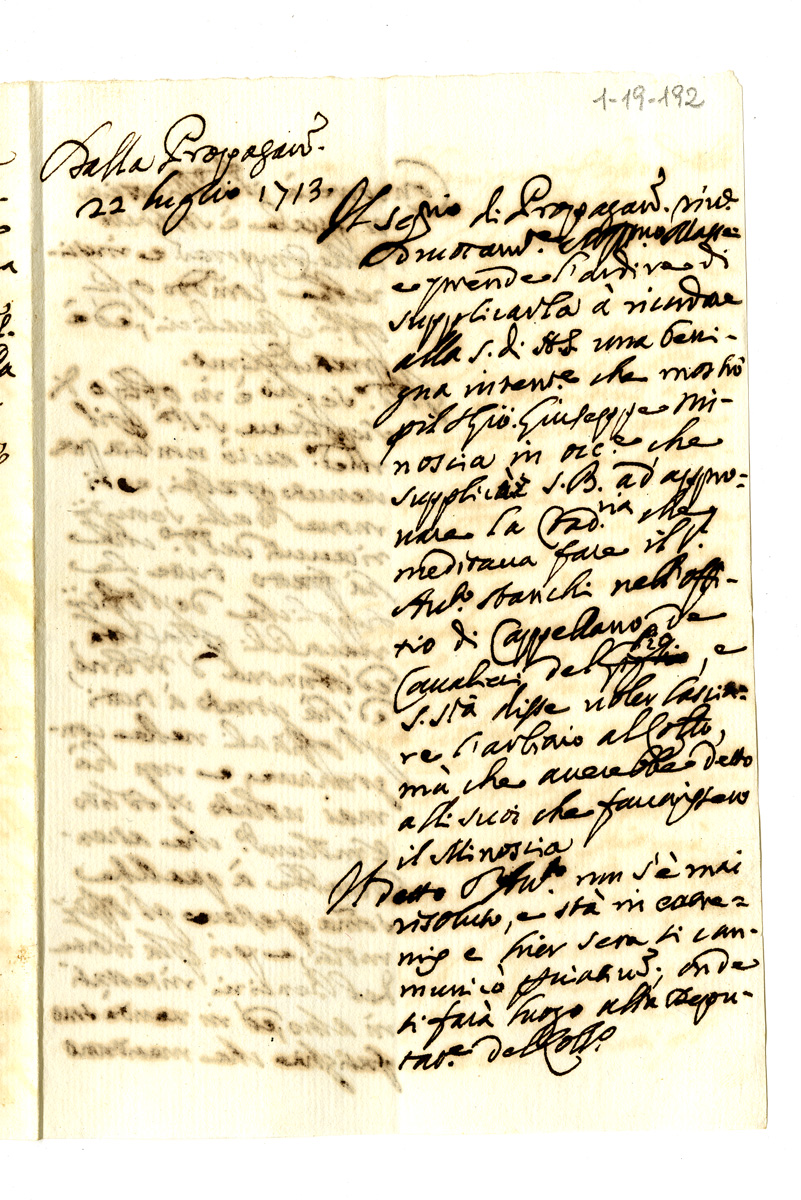 1-19-192
Dalla Propagand.
22 luglio 1713.
Il Segrio di Propagand. riud.
e prende l'ardire di
supplicarla à ricordare
alla S. di NS. una beni-
gna intent.e che mostrò
p il Sig. Giuseppe Mi-
noscia in occ.e, che
supplicò S.B. ad appro-
uare la che
meditaua fare il S.
Ant.o Banchi nell'offi-
tio di Cappellano de
Caualieri del, e
S. Stà disse uoler lascia-
re l'arbitrio al Collo,
mà che auerebbe detto
alli suoi che fauorissero
il Minoscia
Il detto Ant.o non s'è mai
risoluto, e stà in extre-
mis e hier sera si com-
municò, onde
si farà luogo alla Depu-
tat.e del Coll.o